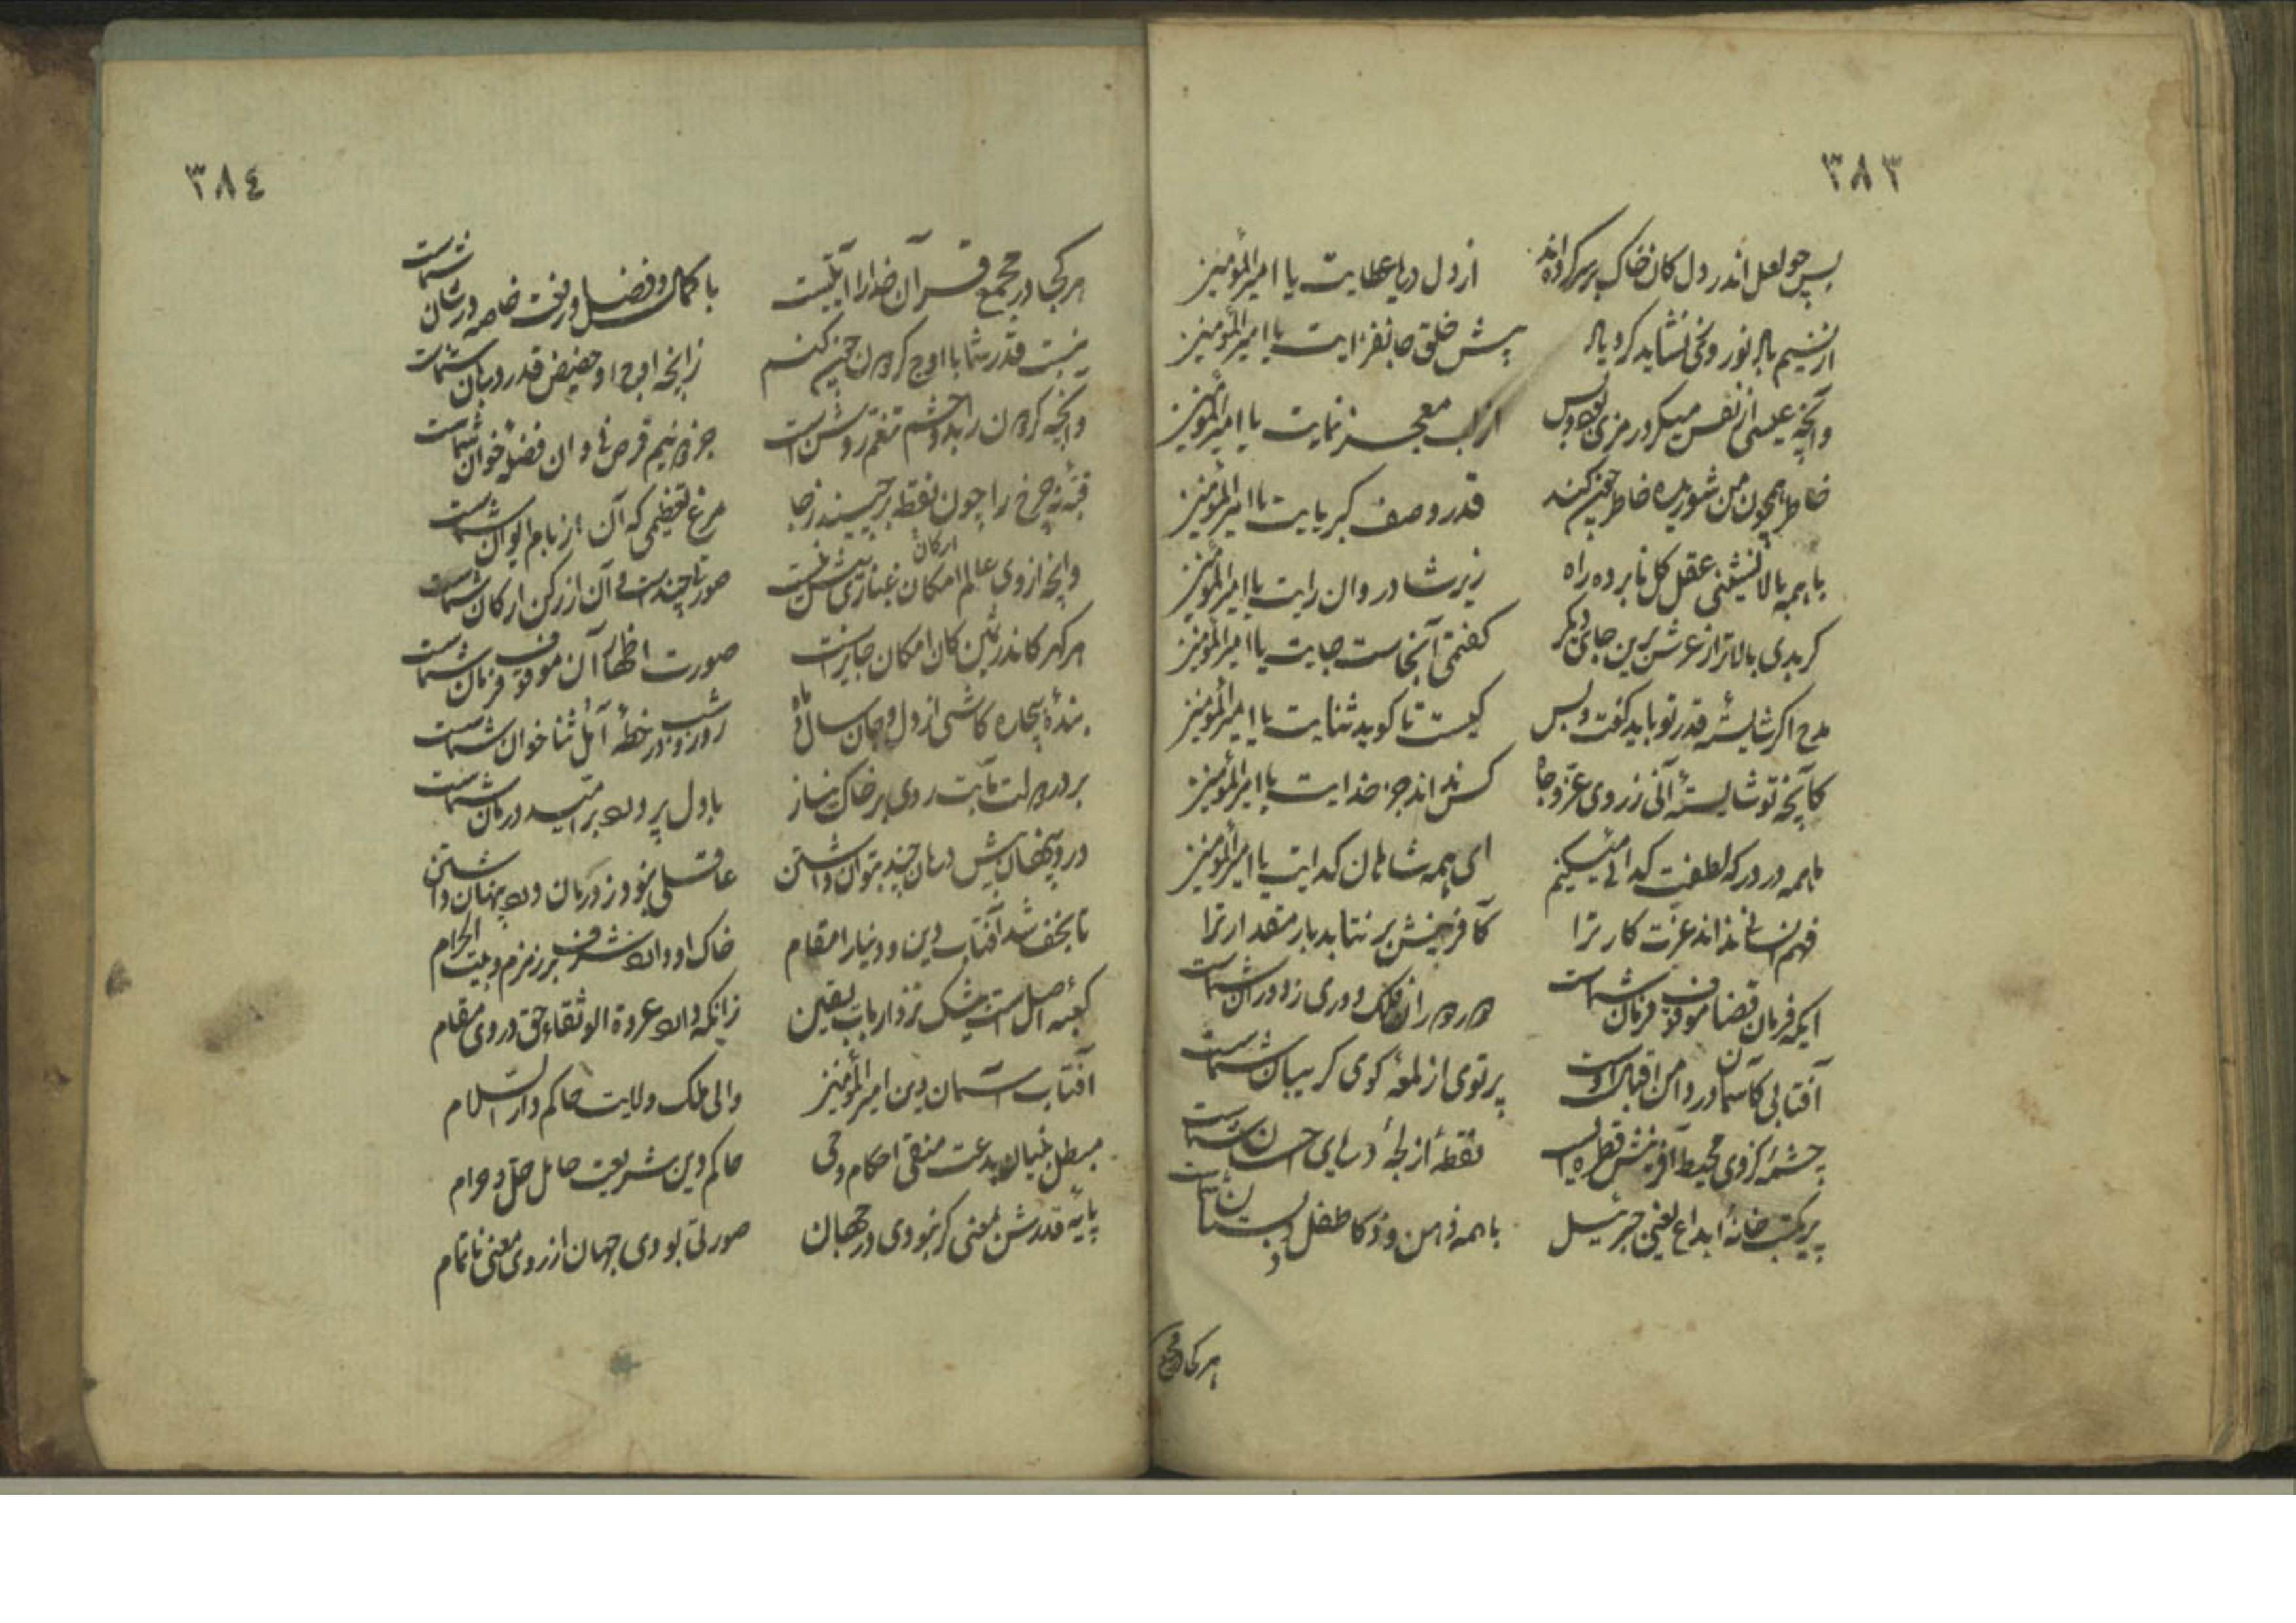 ۳۸۳
بس چو لعل اندر دل کان خاک بر سر کرده‌اند از دل دریا عطایت یا امیرالمؤمنین
از نسیم باد نوروزی نشاید کرد یاد پیش خلق جانفزایت یا امیرالمؤمنین
وانچه عیسی از نفس میکرد رمزی بود و بس از لب معجز نمایت یا امیرالمؤمنین
خاطر همچون من شوریده خاطر چون کند قدر وصف کبریایت یا امیرالمؤمنین
با همه بالانشینی عقل کل نابرده راه زیر شادروان رایت یا امیرالمؤمنین
گر بدی بالاتر از عرش برین جای دگر گفتمی آنجاست جایت یا امیرالمؤمنین
مدح اگر شایستهٔ قدر تو باید گفت و بس کیست تا گوید ثنایت یا امیرالمؤمنین
کآنچه تو شایستهٔ آنی ز روی عز و جاه کس نداند جز خدایت یا امیرالمؤمنین
ما همه در درگه لطفت گدائی میکنیم ای همه شاهان گدایت یا امیرالمؤمنین
فهم انسانی نداند عزت کار ترا کآفرینش بر نتابد بار مقدار ترا
ایکه فرمان قضا موقوف فرمان شماست دور دوران فلک دوری ز دوران شماست
آفتابی کآسمان در دامن اقبال اوست پرتوی از لمعهٔ کوی گریبان شماست
چشمهٔ کز وی محیط آفرینش قطره ایست نقطهٔ از لجهٔ دریای احسان شماست
پیر مکتب خانهٔ ابداع یعنی جبرئیل با همه ذهن و ذکا طفل دبستان شماست
هر کجا در مجمع
۳۸٤
هر کجا در مجمع قرآن خدا را آیتیست با کمال و فضل و رفعت خاصه در شأن شماست
نسبت قدر شما با اوج گردون چون کنم زانچه اوج او حضیض قدر دربان شماست
وانچه گردون را بدو چشم تنعم روشن است جزو نیم قرص نا و ان فضلهٔ خوان شماست
قبهٔ نه چرخ را چون نقطه برچیند ز جا مرغ تعظیمی که آن از بام ایوان شماست
وانچه از وی عالم امکان ارکان غباری بیش نیست صورتا چندست فی آن از رکن ارکان شماست
هر گهر کاندر ثمین کان امکان جایز است صورت اظهار آن موقوف فرمان شماست
بندهٔ بیچاره کاشی از دل و جان سال و ماه روز و شب در خطهٔ آمل ثنا خوان شماست
بر در دولت مآبت روی بر خاک نیاز با دل پر درد بر امید درمان شماست
درد پنهان پیش درمان چند بتوان داشتن عاقلی نبود ز درمان درد پنهان داشتن
تا نجف شد آفتاب دین و دنیا را مقام خاک او دارد شرف بر زمزم و بیت الحرام
کعبهٔ اصل است بیشک نزد ارباب یقین زانکه دارد عروة الوثقاء حق در وی مقام
آفتاب آسمان دین امیرالمؤمنین والی ملک ولایت حاکم دارالسلام
مبطل بنیان بدعت متقی احکام وحی حاکم دین شریعت حامل حل و حرام
پایهٔ قدرش بمعنی گر نبودی در جهان صورتی بودی جهان از روی معنی ناتمام